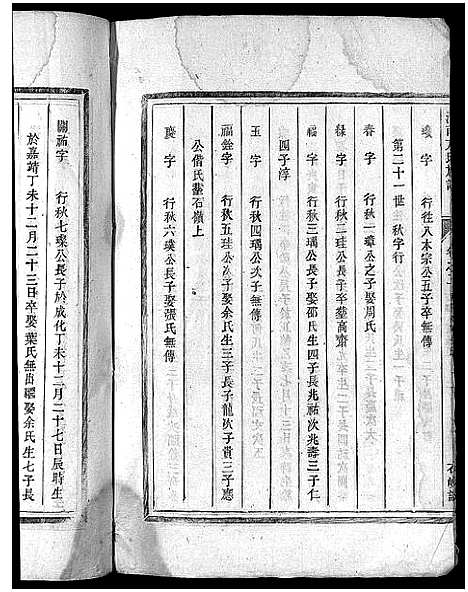 瓊字 行往八本宗公五子卒無傳
第二十一世生秋字行
春字 行秋一璋公之子娶周氏
祿字 行秋二珪公長子卒葬高齋
福字 行秋三瑀公長子娶邵氏生四子長兆祐次兆壽三子仁
四子淳
玉字 行秋四瑀公次子無傳
福餘字 行秋五珪公次子娶余氏生三子長子龍次子貴三子應
公偕氏葬石嶺上
慶字 行秋六璞公長子娶張氏無傳
關祐字 行秋七璞公長子於成化丁未十二月二十七日辰時生
於嘉靖丁未十二月二十三日卒娶葉氏無出繼娶余氏生七子長